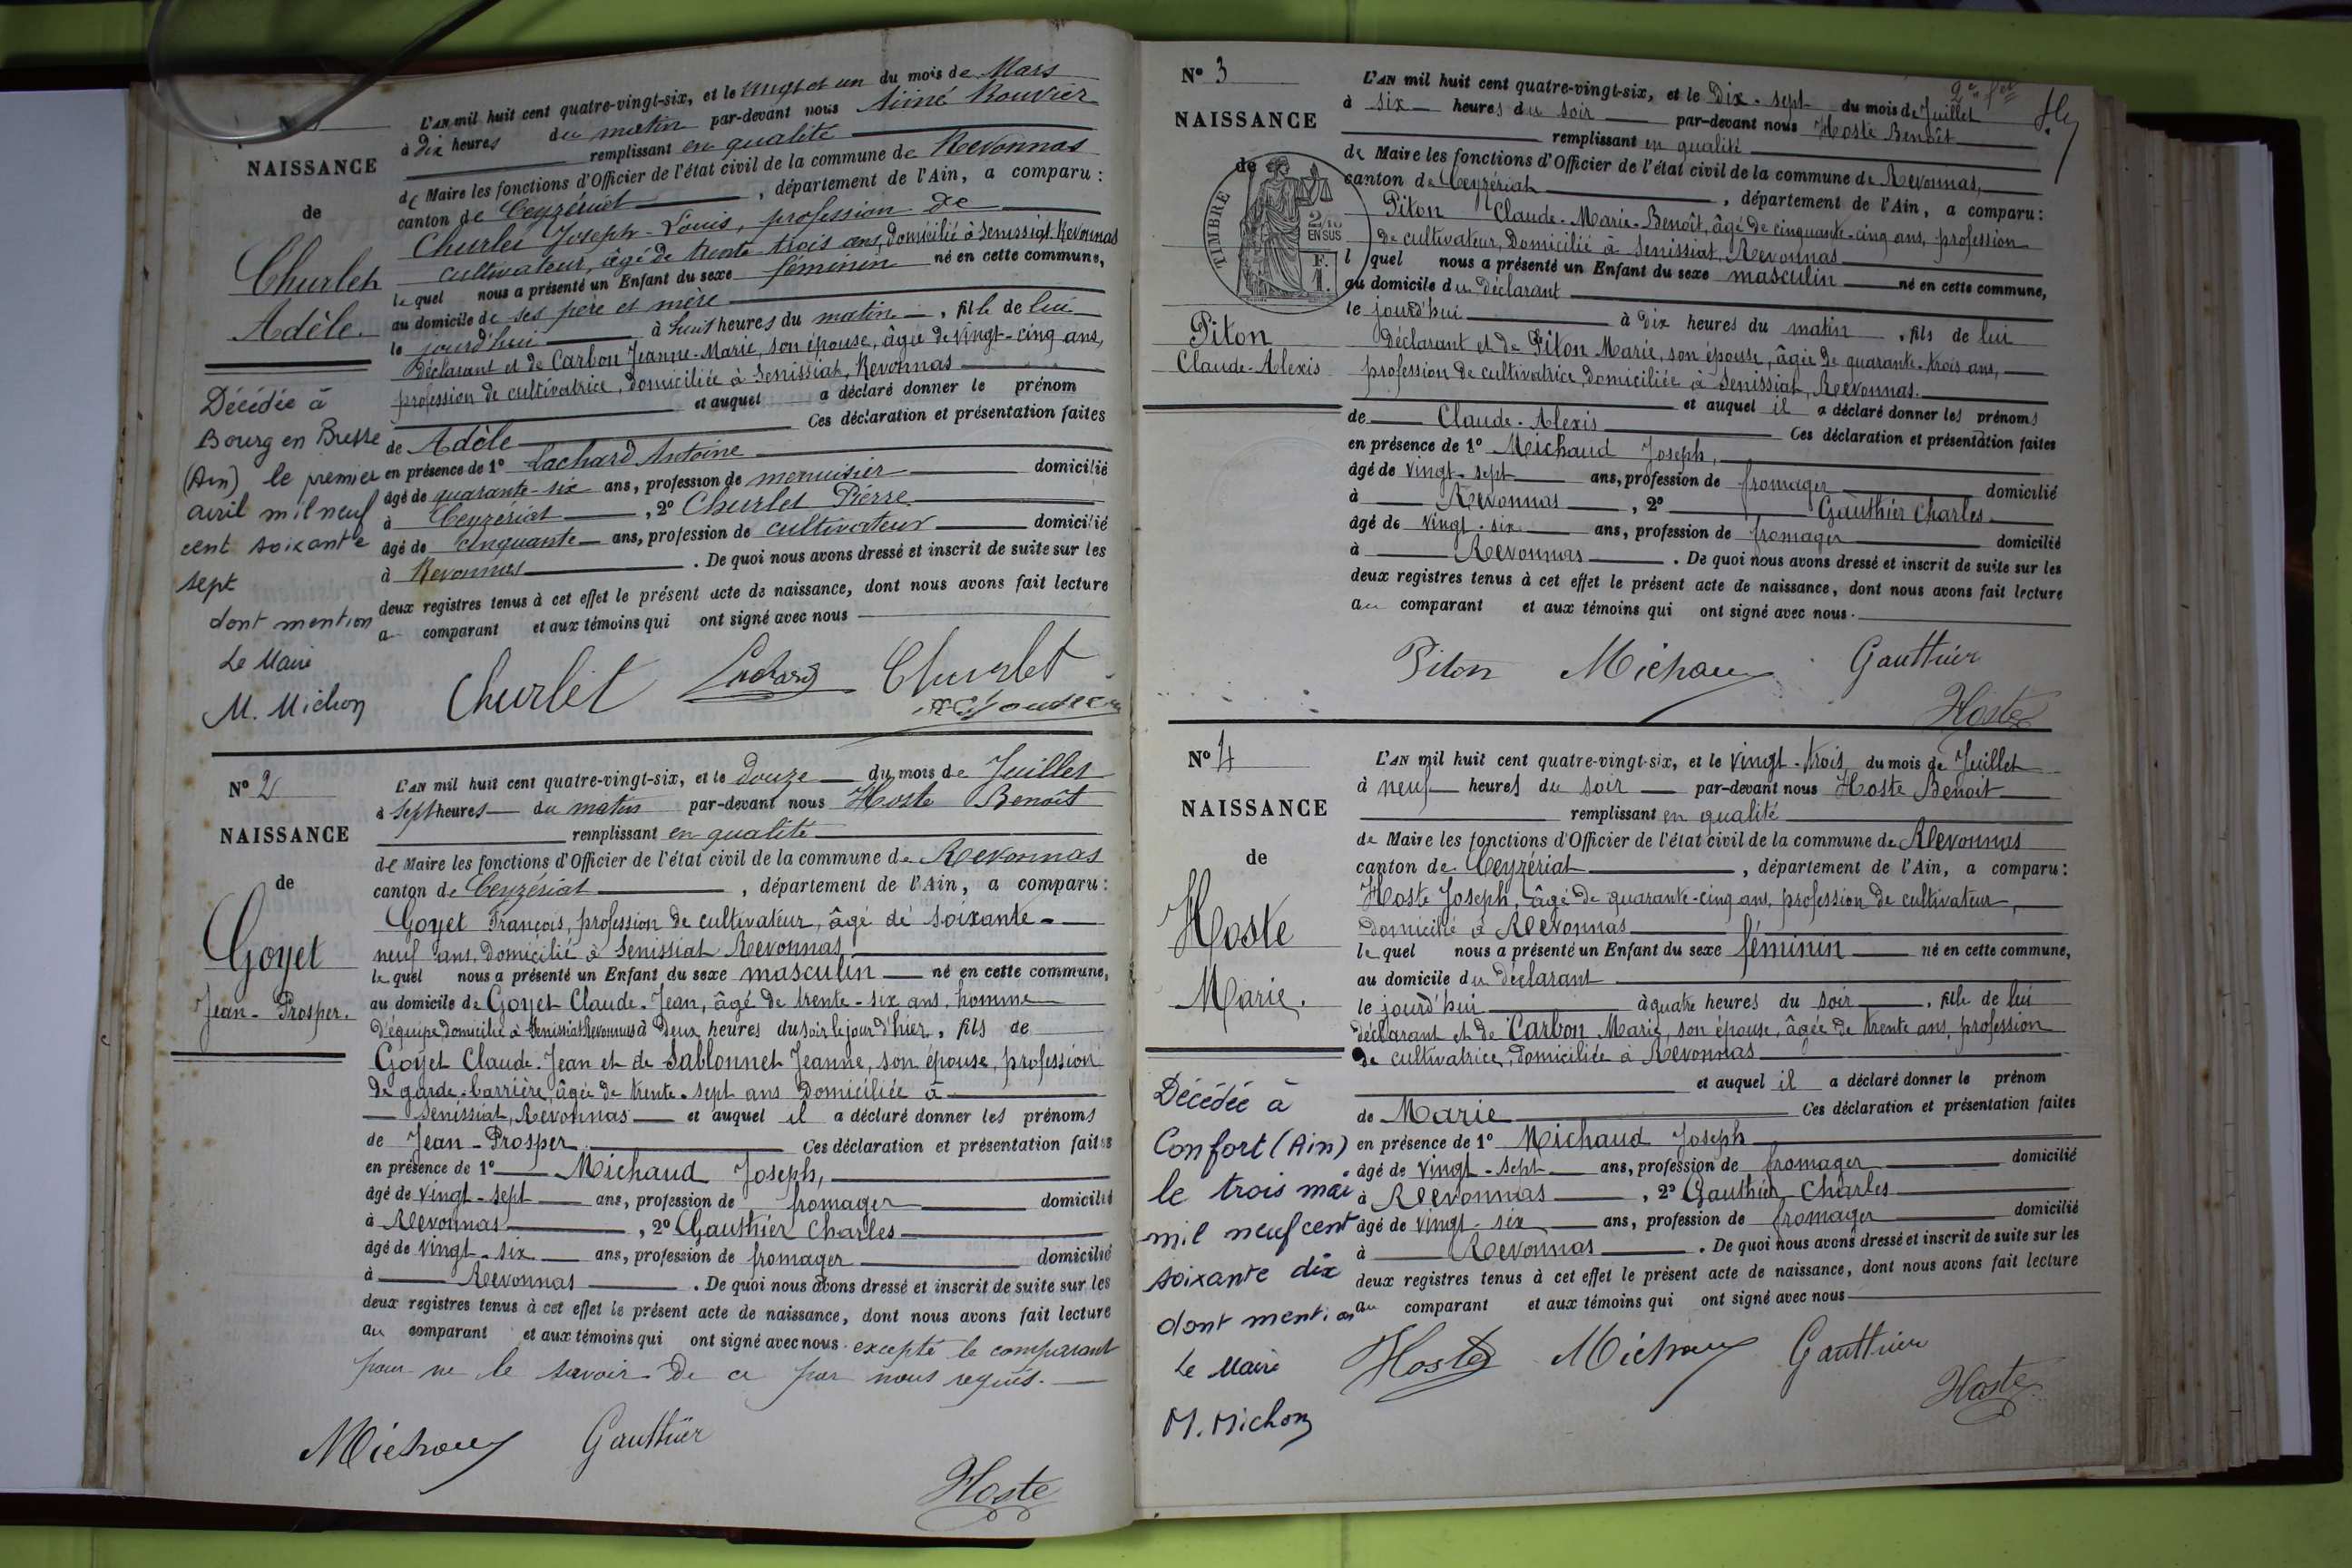 NAISSANCE
de
Churlet
Adèle.
Décédée à
Bourg en Bresse
(Ain) le premier
avril mil neuf
cent soixante
sept
dont mention
Le Maire
M. Michon
L'AN mil huit cent quatre-vingt-six, et le vingt et un du mois de Mars
à Dix heures du matin par-devant nous Aimé Bouvier
remplissant en qualité
de Maire les fonctions d'Officier de l'état civil de la commune de Revonnas
canton de Ceyzériat, département de l'Ain, a comparu :
Churlet Joseph-Louis, profession de
cultivateur, âgé de trente-trois ans, domicilié à Senissiat-Revonnas
lequel nous a présenté un Enfant du sexe féminin né en cette commune,
au domicile de ses père et mère
le jourd'hui à huit heures du matin, fille de lui
Déclarant et de Carbon Jeanne-Marie, son épouse, âgée de vingt-cinq ans,
profession de cultivatrice, domiciliée à Senissiat, Revonnas
et auquel a déclaré donner le prénom
de Adèle Ces déclaration et présentation faites
en présence de 1º Lachard Antoine
âgé de quarante-six ans, profession de menuisier domicilié
à Ceyzériat, 2º Churlet Pierre
âgé de cinquante ans, profession de cultivateur domicilié
à Revonnas. De quoi nous avons dressé et inscrit de suite sur les
deux registres tenus à cet effet le présent acte de naissance, dont nous avons fait lecture
au comparant et aux témoins qui ont signé avec nous
Churlet Lachard Churlet
Nº 2
NAISSANCE
de
Goyet
Jean-Prosper.
L'AN mil huit cent quatre-vingt-six, et le douze du mois de Juillet
à sept heures du matin par-devant nous Hoste Benoît
remplissant en qualité
de Maire les fonctions d'Officier de l'état civil de la commune de Revonnas
canton de Ceyzériat, département de l'Ain, a comparu :
Goyet François, profession de cultivateur, âgé de soixante-
neuf ans, domicilié à Senissiat Revonnas,
lequel nous a présenté un Enfant du sexe masculin né en cette commune,
au domicile de Goyet Claude-Jean, âgé de trente-six ans, homme
d'équipe domicilié à Senissiat Revonnas à Deux heures du soir le jour d'hier, fils de
Goyet Claude-Jean et de Sablonnet Jeanne, son épouse, profession
de garde-barrière, âgée de trente-sept ans Domiciliée à
Senissiat, Revonnas et auquel il a déclaré donner les prénoms
de Jean-Prosper Ces déclaration et présentation faites
en présence de 1º Michaud Joseph,
âgé de vingt-sept ans, profession de fromager domicilié
à Revonnas, 2º Gauthier Charles
âgé de vingt-six ans, profession de fromager domicilié
à Revonnas. De quoi nous avons dressé et inscrit de suite sur les
deux registres tenus à cet effet le présent acte de naissance, dont nous avons fait lecture
au comparant et aux témoins qui ont signé avec nous excepté le comparant
pour ne le savoir de ce par nous requis.
Michaud Gauthier
Hoste
Nº 3
NAISSANCE
de
TIMBRE
2/10
EN SUS
F.
1.
Piton
Claude-Alexis
L'AN mil huit cent quatre-vingt-six, et le Dix-sept du mois de Juillet
à six heures du soir par-devant nous Hoste Benoît
remplissant en qualité
de Maire les fonctions d'Officier de l'état civil de la commune de Revonnas,
canton de Ceyzériat, département de l'Ain, a comparu :
Piton Claude-Marie-Benoît, âgé de cinquante-cinq ans, profession
de cultivateur, Domicilié à Senissiat, Revonnas
lquel nous a présenté un Enfant du sexe masculin né en cette commune,
au domicile du Déclarant
le jourd'hui à Dix heures du matin, fils de lui
Déclarant et de Piton Marie, son épouse, âgée de quarante-trois ans,
profession de cultivatrice, domiciliée à Senissiat, Revonnas.
et auquel il a déclaré donner les prénoms
de Claude-Alexis Ces déclaration et présentation faites
en présence de 1º Michaud Joseph,
âgé de vingt-sept ans, profession de fromager domicilié
à Revonnas, 2º Gauthier Charles
âgé de vingt-six ans, profession de fromager domicilié
à Revonnas. De quoi nous avons dressé et inscrit de suite sur les
deux registres tenus à cet effet le présent acte de naissance, dont nous avons fait lecture
au comparant et aux témoins qui ont signé avec nous.
Piton Michaud Gauthier
Hoste
Nº 4
NAISSANCE
de
Hoste
Marie.
Décédée à
Confort (Ain)
le trois mai
mil neuf cent
soixante dix
dont mention
Le Maire
M. Michon
L'AN mil huit cent quatre-vingt-six, et le vingt-trois du mois de Juillet
à neuf heures du soir par-devant nous Hoste Benoit
remplissant en qualité
de Maire les fonctions d'Officier de l'état civil de la commune de Revonnas
canton de Ceyzériat, département de l'Ain, a comparu :
Hoste Joseph, âgé de quarante-cinq ans, profession de cultivateur,
Domicilié à Revonnas
lequel nous a présenté un Enfant du sexe féminin né en cette commune,
au domicile du déclarant
le jourd'hui à quatre heures du soir, fille de lui
déclarant et de Carbon Marie, son épouse, âgée de trente ans, profession
de cultivatrice, domiciliée à Revonnas
et auquel il a déclaré donner le prénom
de Marie Ces déclaration et présentation faites
en présence de 1º Michaud Joseph
âgé de vingt-sept ans, profession de fromager domicilié
à Revonnas, 2º Gauthier Charles
âgé de vingt-six ans, profession de fromager domicilié
à Revonnas. De quoi nous avons dressé et inscrit de suite sur les
deux registres tenus à cet effet le présent acte de naissance, dont nous avons fait lecture
au comparant et aux témoins qui ont signé avec nous
Hoste Michaud Gauthier
Hoste